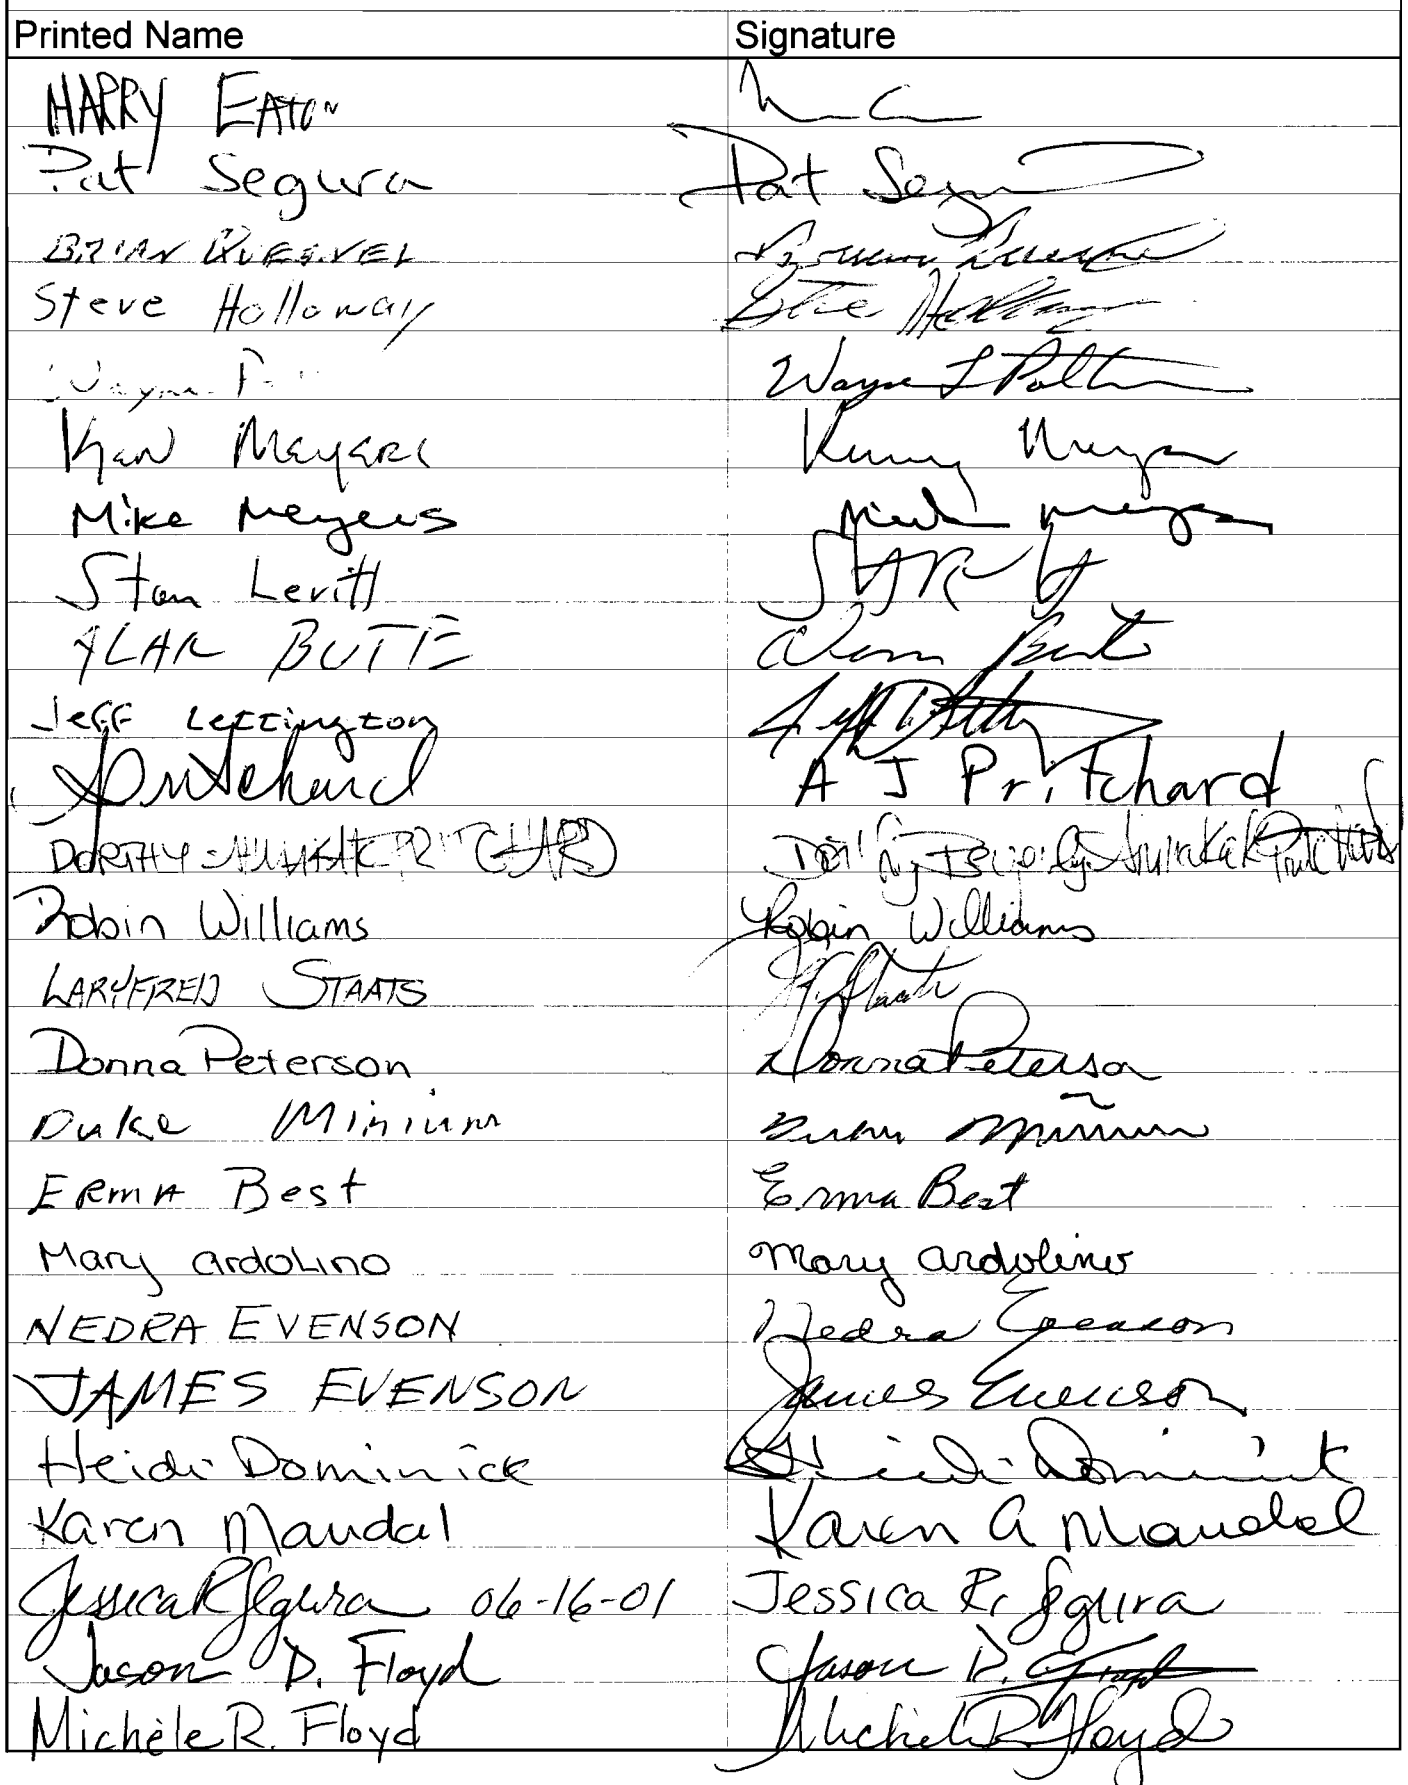 Printed Name Signature
HARRY EATON
Pat Segura Pat Segura
BRIAN QUESNEL
Steve Holloway Steve Holloway
Wayne Wayne L
Ken Meyers Kenny Meyers
Mike Meyers Mike Meyers
Stan Levitt
ALAN BUTTE Alan Butte
Jeff Lettington Jeff
Pritchard A J Pritchard
DORTHY PRITCHARD
Robin Williams Robin Williams
LARYFRED STAATS Staats
Donna Peterson Donna Peterson
Duke Minium Minium
ERMA Best Erma Best
Mary ardolino Mary ardolino
NEDRA EVENSON Nedra Evenson
JAMES EVENSON James Evenson
Heidi Dominick Heidi Dominick
Karen Maudal Karen A Maudal
Jessica R Segura 06-16-01 Jessica R. Segura
Jason D. Floyd Jason D. Floyd
Michèle R. Floyd Michele R Floyd